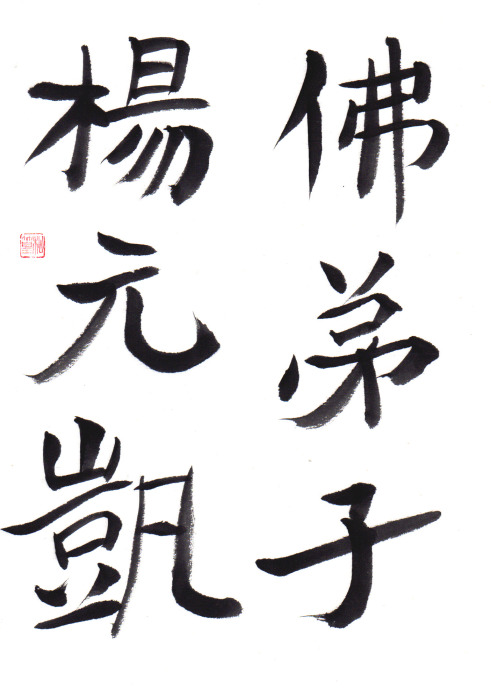 佛弟子
楊元凱